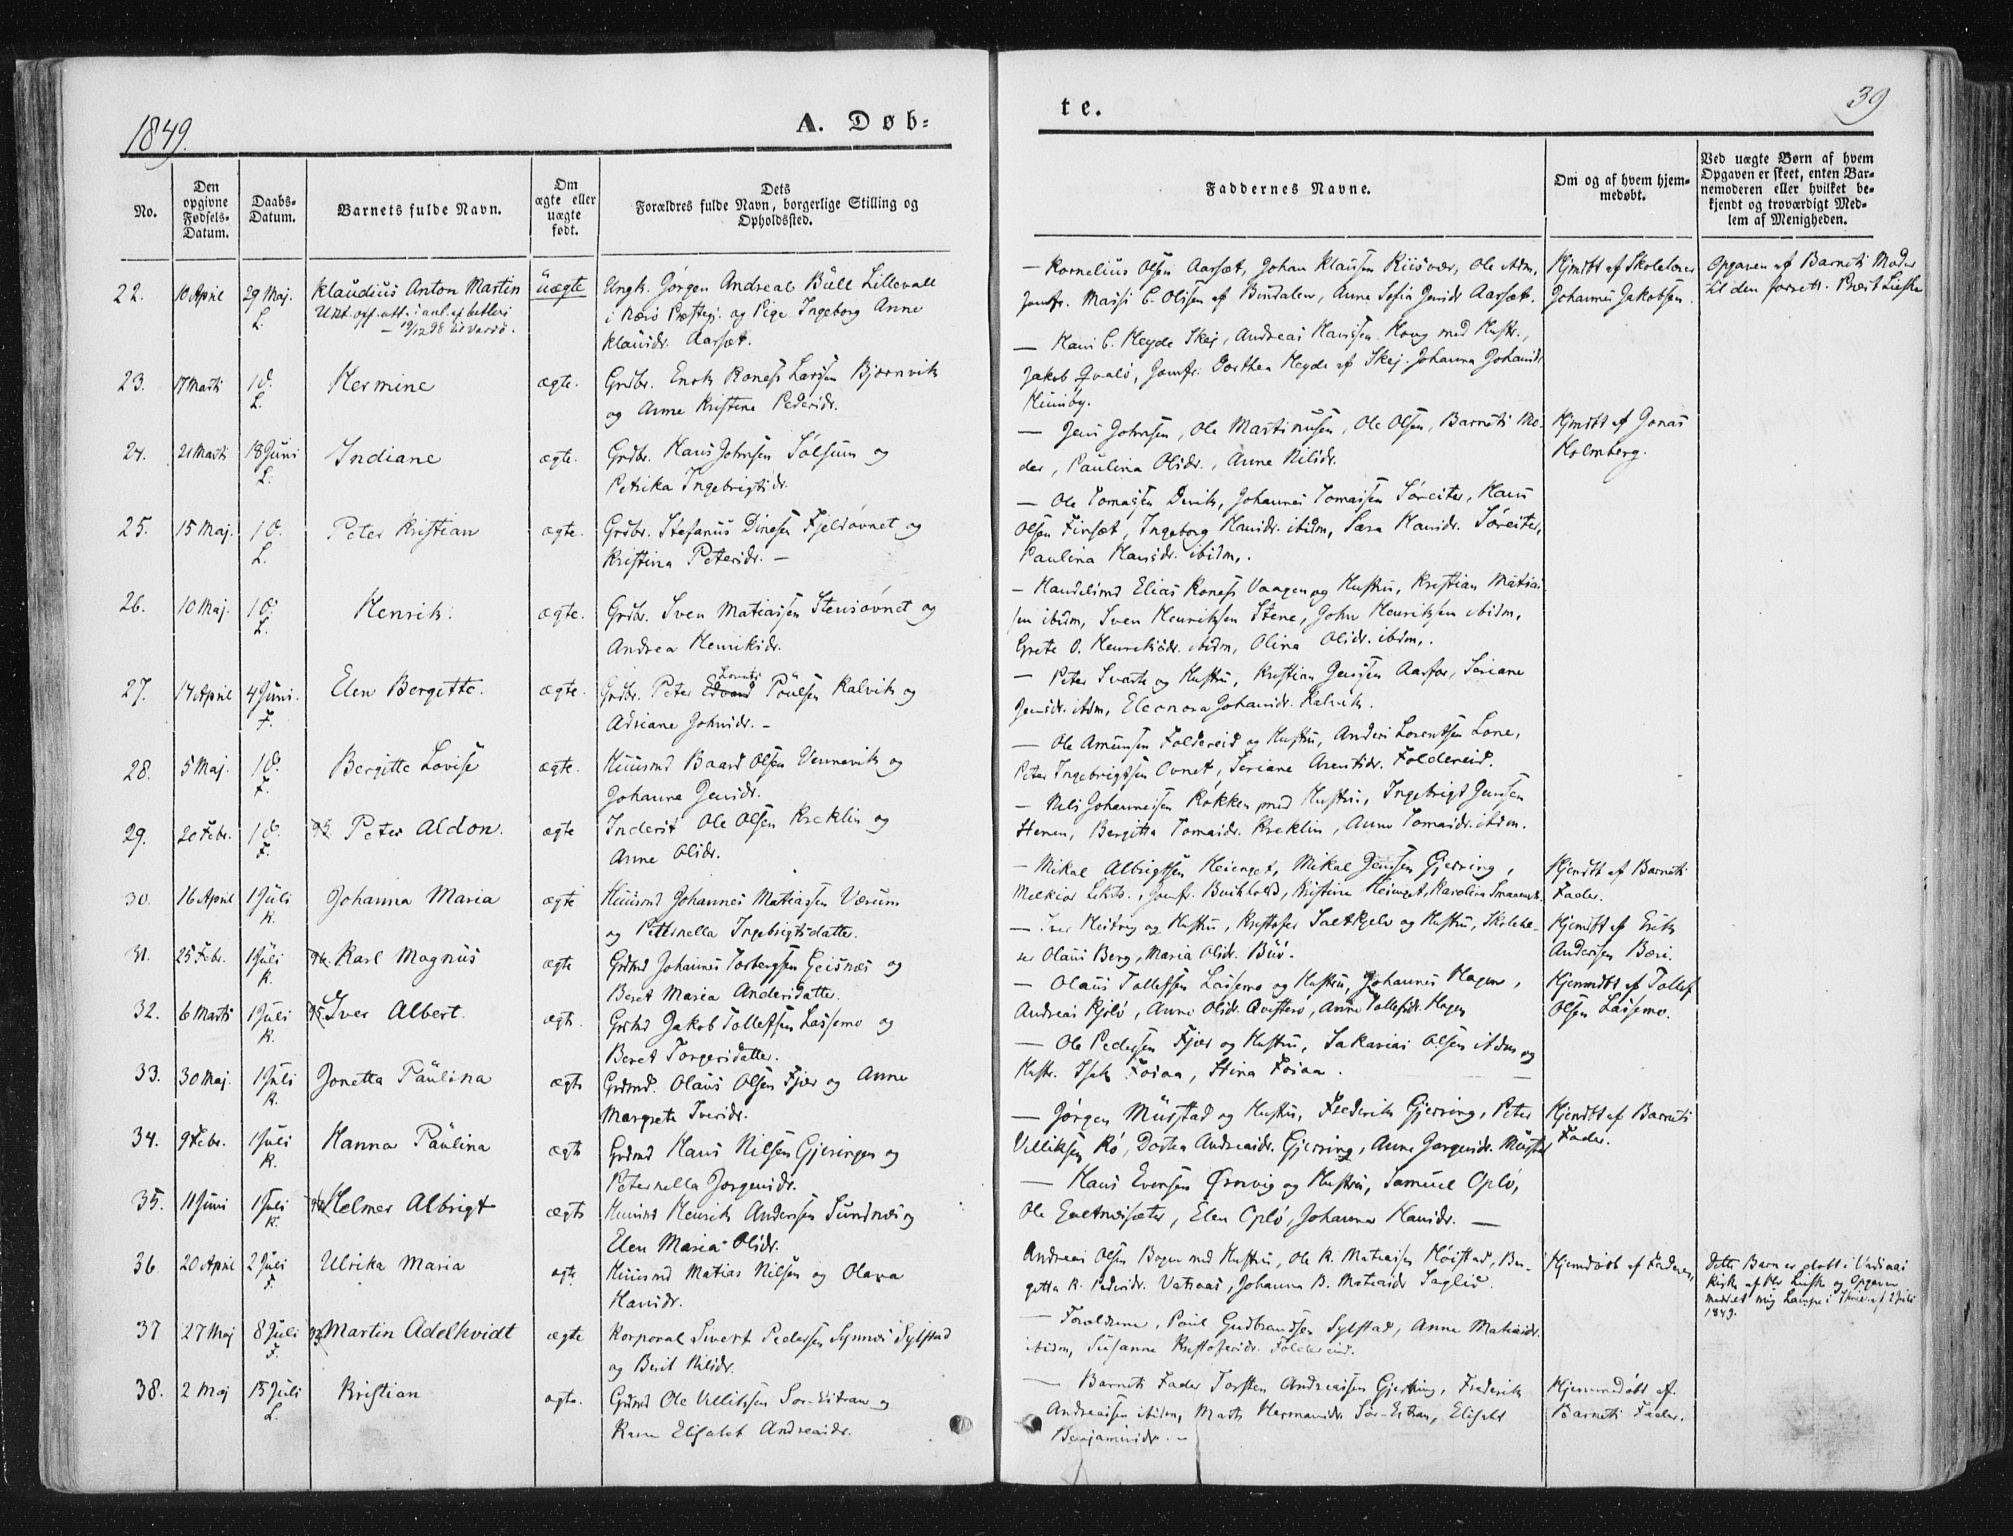 1849.
A. Døb-
te.
39
No.
Den opgivne Fødsels-Datum.
Daabs-Datum.
Barnets fulde Navn.
Om ægte eller uægte født.
Dets Forældres fulde Navn, borgerlige Stilling og Opholdssted.
Faddernes Navne.
Om og af hvem hjemmedøbt.
Ved uægte Børn af hvem
Opgaven er skeet, enten Bar-
nemoderen eller hvilket be-
kjendt og troværdigt Med-
lem af Menigheden.
22. 10 April 29 Maj. L. Klaudius Anton Martin uægte Ungk. Jørgen Andreas Bull Lillevall
Udt. off. att. i anl. af
19/12 98 til Vardø.
i Nærø Præstegj. og Pige Ingeborg Anne
Klausdr. Aarsæt.
— Kornelius Olsen Aarsæt, Johan Klausen Riisvær, Ole ibdm,
Jomfr. Massi C. Olsen af Bindalen, Anne Sofia Jensdr Aarsæt.
Hjmdbt af Skolelærer
Johannes Jakobsen
Opgaven af Barnets Moder
til den forrett. Præst
23. 17 Marti 1d. L. Hermine ægte. Grdbr. Enok Roness Larsen Bjørnvik
og Anne Kristine Pedersdr.
— Hans C. Heyde Skej, Andreas Hanssen Haug med Hustr.,
Jakob Qvalø, Jomfr. Dorthea Heyde af Skej. Johanna Johansdr
24. 21 Marti 18 Juni L. Indiane ægte. Grdbr. Hans Johnsen Solsum og
Petrika Ingebrigtsdr.
— Jens Johnsen, Ole Martinusen, Ole Olsen, Barnets Mo-
der, Paulina Olsdr., Anne Nilsdr.
Hjmdbt af Jonas
Holmberg.
25. 15 Maj. 1d. L. Peter Kristian ægte. Grdbr. Stefanus Dinesen Fjeldøvnet og
Kristina Petersdr. —
— Ole Tomassen Devik, Johannes Tomassen Søreiter, Hans
Olsen Finsæt, Ingeborg Hansdr. ibidm, Sara Hansdr. Søreiter,
Paulina Hansdr. ibidm.
26. 10 Maj. 1d. L. Henrik. ægte. Grdbr. Sven Matiassen Stensøvnet og
Andrea Henriksdr.
— Handelsmd Elias Roness Vaagen og Hustru, Kristian Matias-
sen ibidm, Sven Henriksen Stene, John Henriksen ibidm,
Grete O. Henriksdr. ibidm, Olina Olsdr. ibdm.
27. 17 April 4 Juni. F. Elen Bergitte. ægte. Grdbr. Peter Edvard Lorents Pöulsen Kalvik og
Adriane Johnsdr. —
— Peter Svarte og Hustru, Kristian Jenssen Aarfor, Seriane
Jensdr. ibdm, Eleonora Johansdr. Kalvik.
28. 5 Maj. 1d. F. Bergitte Lovise ægte. Huusmd Baard Olsen Vennevik og
Johanna Jensdr.
— Ole Amunsen Foldereid og Hustru, Anders Lorentsen Lone,
Peter Ingebrigtsen Ovnet, Seriane Arentsdr. Foldereid.
29. 20 Febr. 1d. F. Peter Aldon. ægte Inderst Ole Olsen Kreklin og
Anne Olsdr.
— Nils Johannessen Kokken med Hustru, Ingebrigt Jenssen
Stenen, Bergitta Tomasdr. Kreklin, Anne Tomasdr. ibdm.
30. 16 April 1 Juli K. Johanna Maria ægte Huusmd Johannes Matiassen Værum
og Petternella Ingebrigtsdatter.
— Mikal Albrigtsen Heienget, Mikal Jenssen Gjerring,
Hjemdbt af Barnets
Fader.
31. 25 Febr. 1 Juli K. Karl Magnus ægte Grdmd Johannes Torbergsen Geisnæs og
Beret Maria Andersdatter.
— Iver Heidvig og Hustru, Kristofer Saltkjelv og Hustru, Skolelæ-
rer Olaus Berg, Maria Olsdr. Buø.
Hjemdbt af Erik
Andersen
32. 6 Marti 1 Juli K. Iver Albert. ægte. Grdmd Jakob Tollefsen Lassemo og
Beret Torgersdatter.
— Olaus Tollefsen Lassemo og Hustru, Johannes Hagen,
Andreas Kjølø, Anne Olsdr. Qvisterø, Anne Tollefsdr. Hagen
Hjemmdbt af Tollef
Olsen Lassemo.
33. 30 Maj. 1 Juli K. Jonetta Paülina ægte Grdmd. Olaus Olsen Fjær og Anne
Margrete Iversdr.
— Ole Pedersen Fjær og Hustru, Sakarias Olsen ibdm og
Hustr. Isak Fosaa, Stina Fosaa.
34. 9 Febr. 1 Juli K. Hanna Paülina ægte Grdmd Hans Nilsen Gjeringen og
Peternella Jørgensdr.
— Jørgen Müsstad og Hustru, Frederik Gjerring, Peter
Villiksen Rö, Dortea Andreasdr. Gjerring, Anne Jørgensdr. Müsstad
Hjemdbt af Barnets
Fader.
35. 11 Juni 1 Juli K. Helmer Albrigt ægte Huusmd Henrik Anderssen Sundnæs og
Elen Maria Olsdr.
— Hans Evensen Ørnvig og Hustru, Samuel Oplö,
Ole Galtneisæter, Elen Oplö, Johanna Hansdr. —
36 20 April 2 Juli F. Ulrika Maria ægte Huusmd Matias Nilsen og Olava
Hansdr.
Andreas Olsen Bogen med Hustru, Ole R. Matiasen Høistad, Ber-
getta R. Pedersdr. Vatnaas, Johanna B. Matiasdr Saglid.
Hjemdøbt af Faderen,
Dette Barn er døbt i
1849.
37 27 Maj 8 Juli F. Martin Adelhvidt ægte Korporal Sivert Pedersen Synnes Sylstad
og Berit Nilsdr.
— Forældrene, Paul Gudbrandsen Sylstad, Anne Matiasdr.
ibidm, Susanne Kristofersdr. Foldereid.
38. 2 Maj 15 Juli L. Kristian ægte. Grdmd Ole Villiksen Sør-Eitran og
Karen Elisabet Andreasdr.
— Barnets Fader Torsten Andreassen Gjerring, Frederik
Andreassen ibidm, Marta Hermansdr. Sør-Eitran, Elisabet
Benjaminsdr. —
Hjemmedøbt af
Barnets Fader.